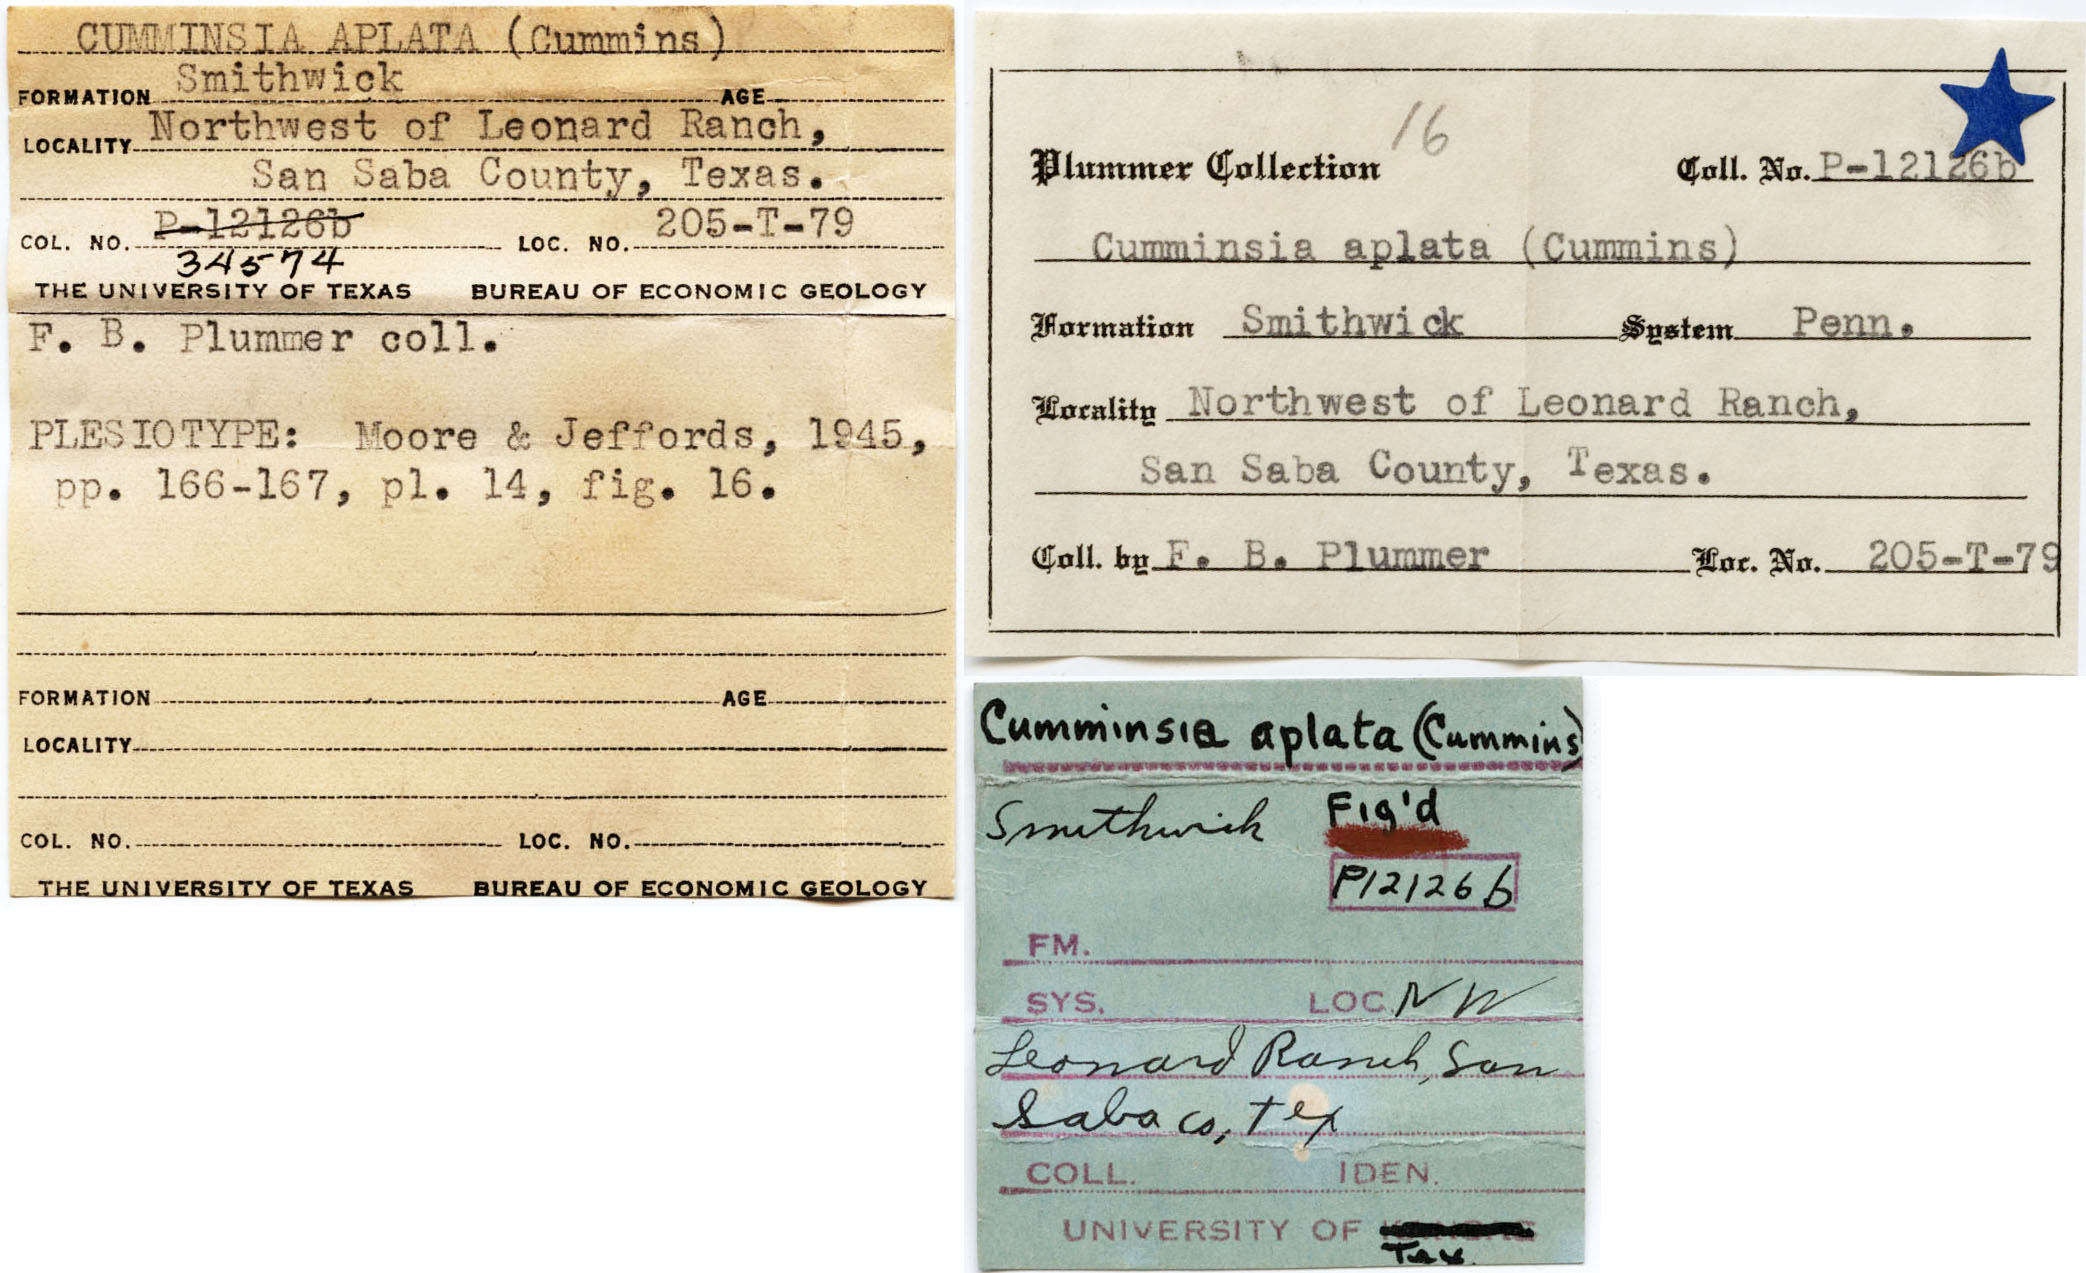 CUMMINSIA APLATA (Cummins)
FORMATION Smithwick AGE
LOCALITY Northwest of Leonard Ranch,
San Saba County, Texas.
COL. NO. P-12126b LOC. NO. 205-T-79
34574
THE UNIVERSITY OF TEXAS BUREAU OF ECONOMIC GEOLOGY
F. B. Plummer coll.
PLESIOTYPE: Moore & Jeffords, 1945,
pp. 166-167, pl. 14, fig. 16.
FORMATION AGE
LOCALITY
COL. NO. LOC. NO.
THE UNIVERSITY OF TEXAS BUREAU OF ECONOMIC GEOLOGY
16
Plummer Collection Coll. No. P-12126b
Cumminsia aplata (Cummins)
Formation Smithwick System Penn.
Locality Northwest of Leonard Ranch,
San Saba County, Texas.
Coll. by F. B. Plummer Loc. No. 205-T-79
Cumminsia aplata (Cummins)
Smithwick Fig'd
P12126b
FM.
SYS. LOC. NW
Leonard Ranch, San
Saba Co, Tex
COLL. IDEN.
UNIVERSITY OF
Tex.